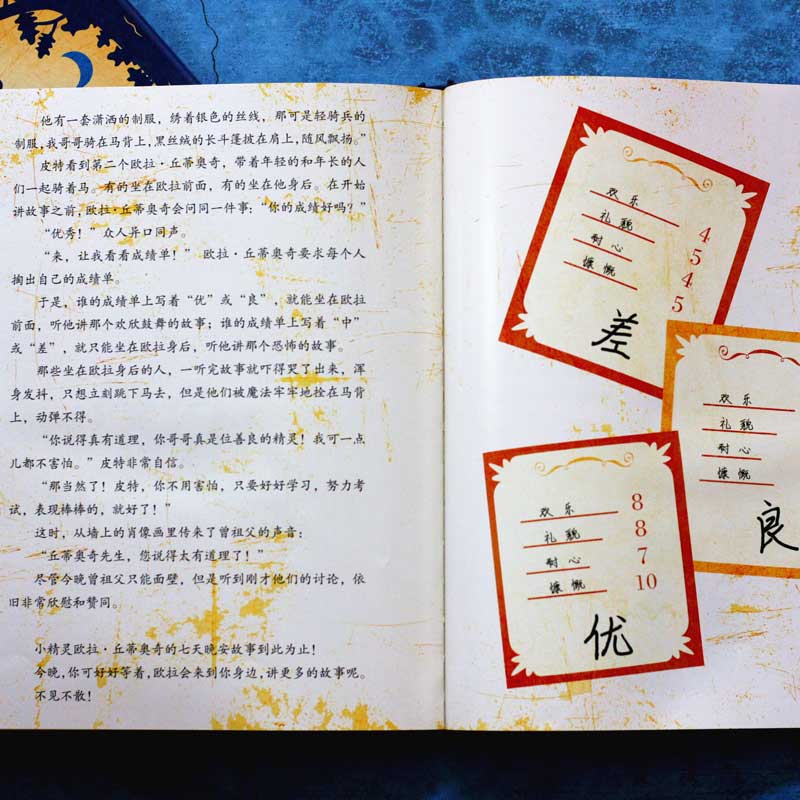 他有一套潇洒的制服，绣着银色的丝线，那可是轻骑兵的
制服，我哥哥骑在马背上，黑丝绒的长斗篷披在肩上，随风飘扬。”
皮特看到第二个欧拉·丘蒂奥奇，带着年轻的和年长的人
们一起骑着马。有的坐在欧拉前面，有的坐在他身后。在开始
讲故事之前，欧拉·丘蒂奥奇会问同一件事：“你的成绩好吗？”
“优秀！”众人异口同声。
“来，让我看看成绩单！” 欧拉·丘蒂奥奇要求每个人
掏出自己的成绩单。
于是，谁的成绩单上写着“优”或“良”，就能坐在欧拉
前面，听他讲那个欢欣鼓舞的故事；谁的成绩单上写着“中”
或“差”，就只能坐在欧拉身后，听他讲那个恐怖的故事。
那些坐在欧拉身后的人，一听完故事就吓得哭了出来，浑
身发抖，只想立刻跳下马去，但是他们被魔法牢牢地拴在马背
上，动弹不得。
“你说得真有道理，你哥哥真是位善良的精灵！我可一点
儿都不害怕。”皮特非常自信。
“那当然了！皮特，你不用害怕，只要好好学习，努力考
试，表现棒棒的，就好了！”
这时，从墙上的肖像画里传来了曾祖父的声音：
“丘蒂奥奇先生，您说得太有道理了！”
尽管今晚曾祖父只能面壁，但是听到刚才他们的讨论，依
旧非常欣慰和赞同。
小精灵欧拉·丘蒂奥奇的七天晚安故事到此为止！
今晚，你可好好等着，欧拉会来到你身边，讲更多的故事呢。
不见不散！
欢乐 4
礼貌 5
耐心 4
慷慨 5
差
欢乐
礼貌
耐心
慷慨
良
欢乐 8
礼貌 8
耐心 7
慷慨 10
优